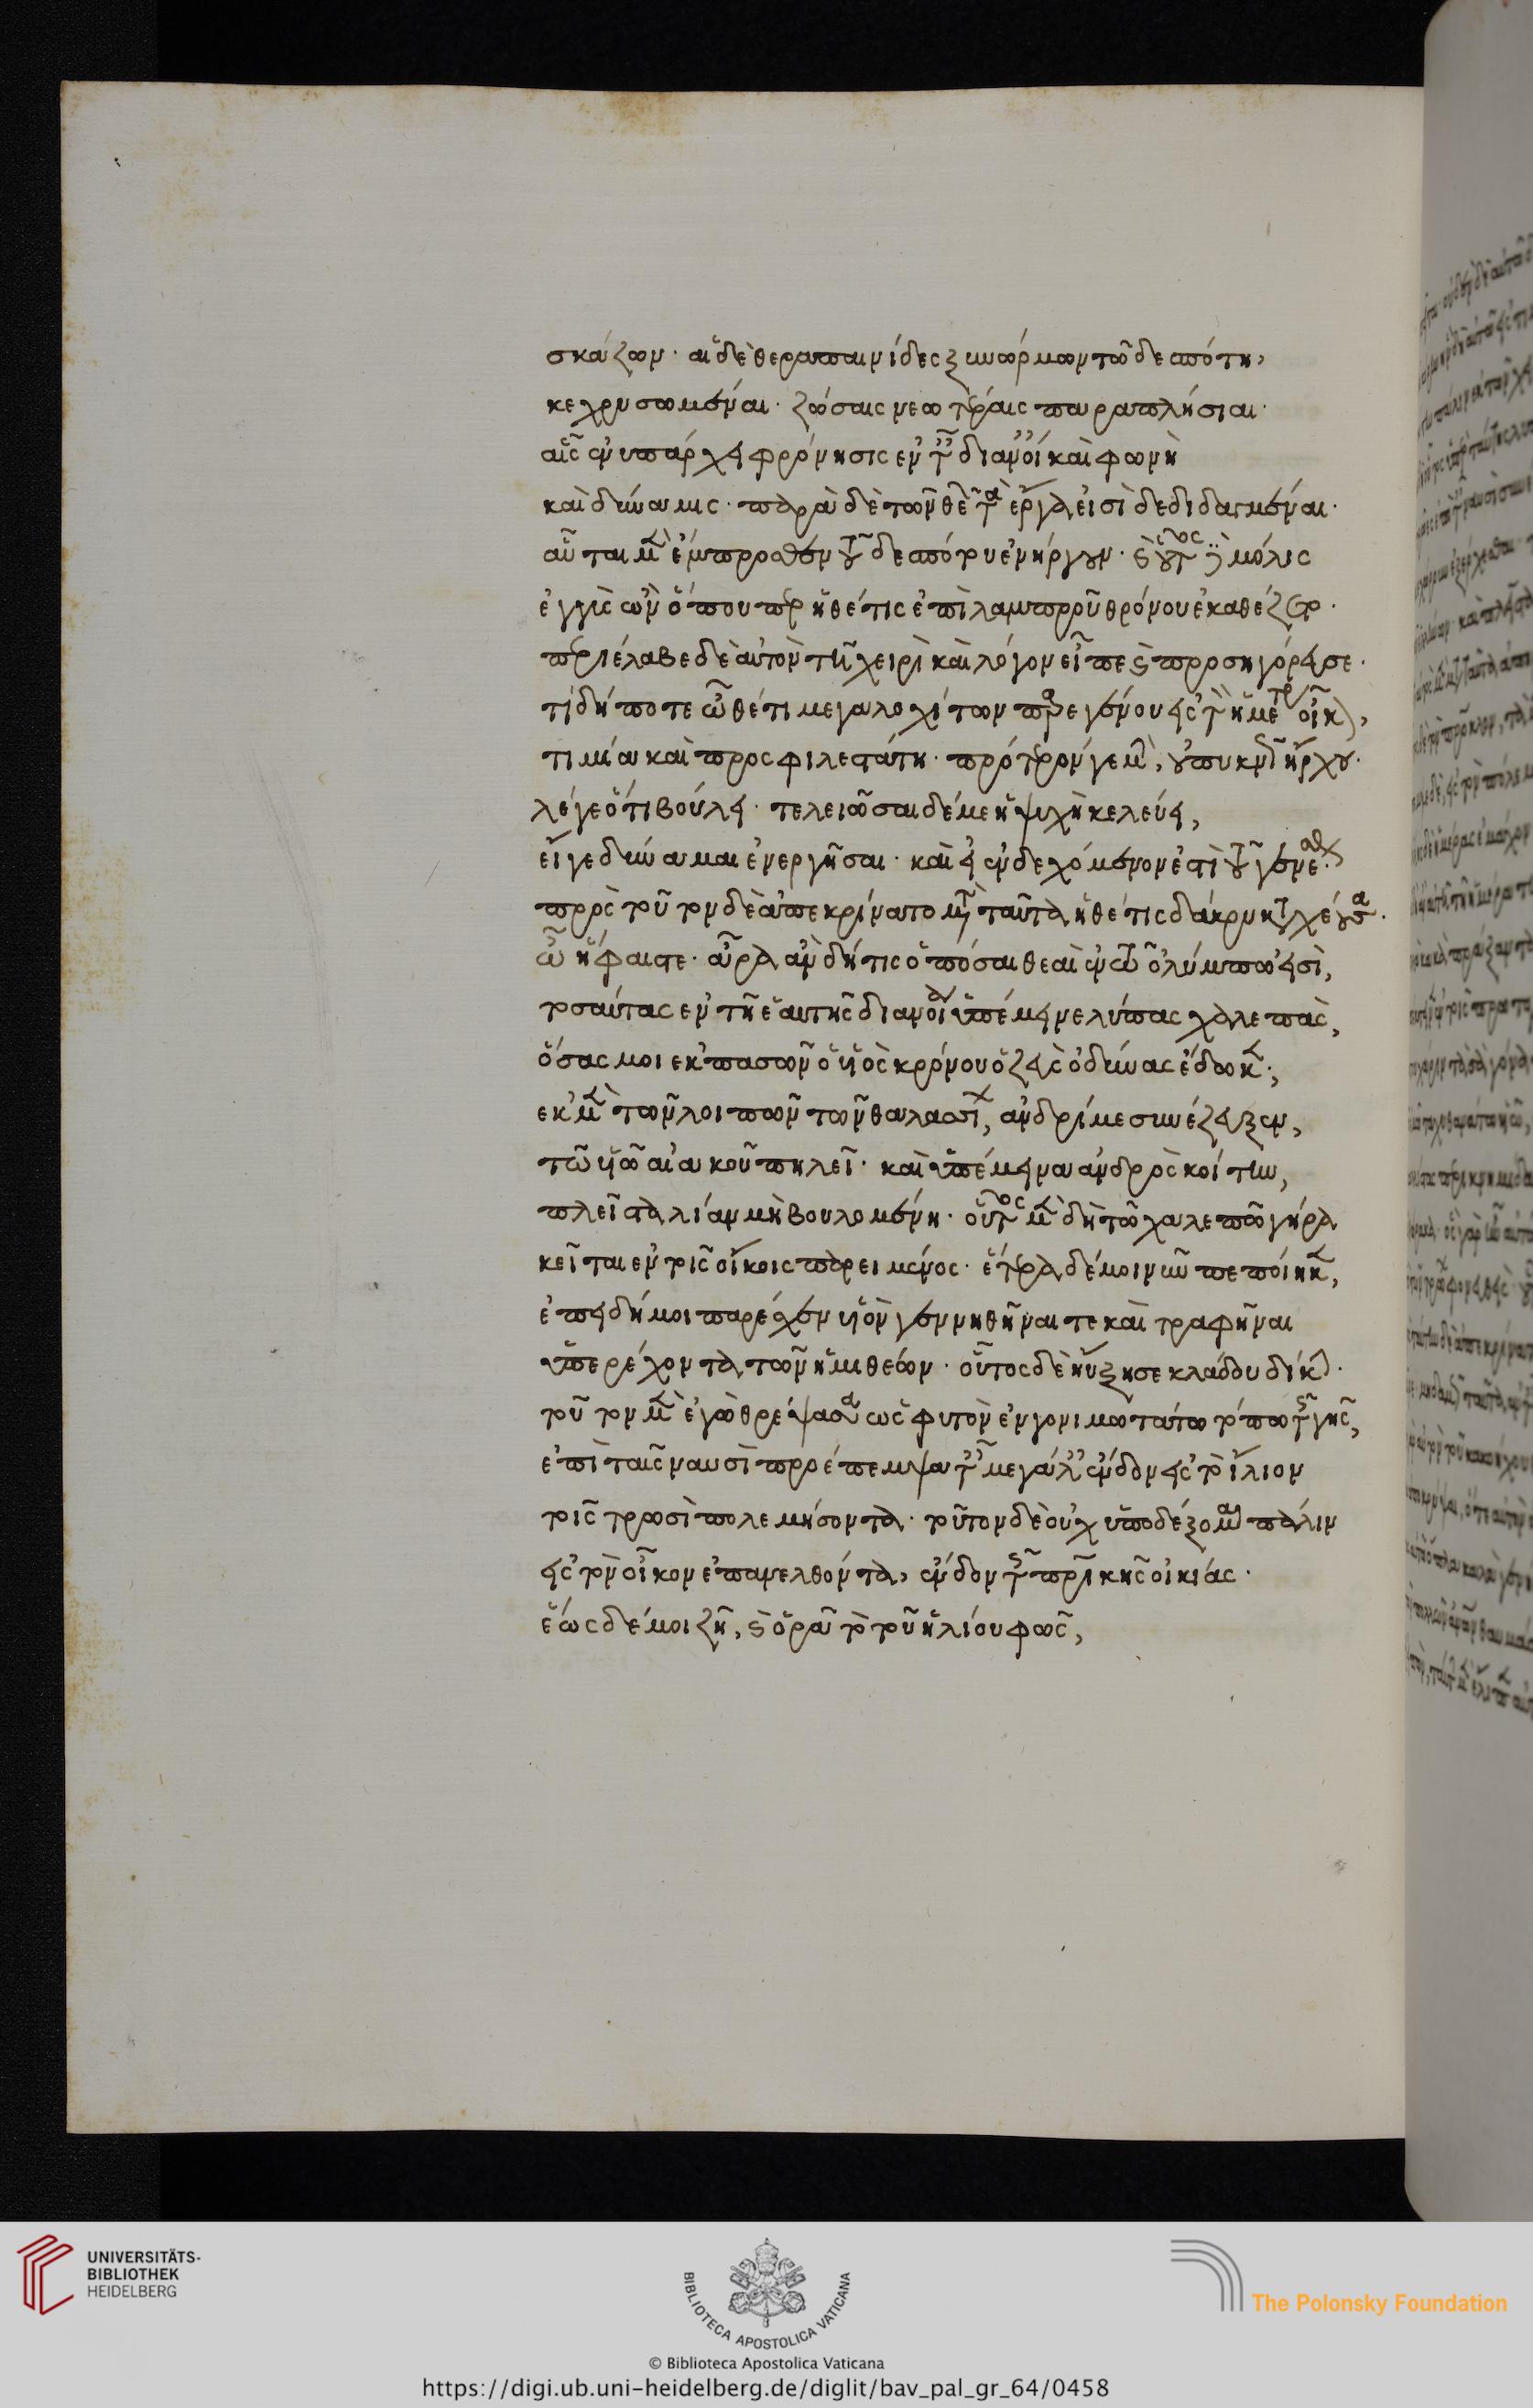 σκάζων· αἱ δὲ θεραπαινίδες ξυνώρμων τῶ δεσπότη,
κεχρυσωμέναι· ζώσαις νεωτέραις παραπλήσιαι·
αἷς ἐνυπάρχει φρόνησις ἐν τῆ διανοία καὶ φωνὴ
καὶ δύναμις· παρὰ δὲ τῶν θεῶν τὰ ἔργα εἰσὶ δεδιδαγμέναι·
αὗται μὲν ἔμπροσθεν τοῦ δεσπότου ἐνήργουν· καὶ οὗτος μόλις
ἐγγὺς ὢν ὅπου περ ἡ θέτις ἐπὶ λαμπροῦ θρόνου ἐκαθέζετο·
περιέλαβε δὲ αὐτὸν τῆ χειρὶ καὶ λόγον εἶπε καὶ προσηγόρευσε·
τί δή ποτε ὦ θέτι μεγαλοχίτων παρεγένου εἰς τὴν ἡμετέραν οἰκίαν,
τιμία καὶ προσφιλεστάτη· πρότερόν γε μὲν, οὔπυκνῶς ἤρχου·
λέγε ὅτι βούλει· τελειῶσαι δέ με ἡ ψυχὴ κελεύει,
εἴγε δύναμαι ἐνεργῆσαι· καὶ εἰ ἐνδεχόμενον ἐστὶ τοῦ γενέσθαι·
πρὸς τοῦτον δὲ ἀπεκρίνατο μετὰ ταῦτα ἡ θέτις δάκρυα χέουσα·
ὦ ἥφαιστε· ἆρα ἂν δή τις ὁπόσαι θεαὶ ἐν τῶ ὀλύμπω εἰσὶ,
τοσαύτας ἐν τῆ ἑαυτῆς διανοία ὑπέμεινε λύπας χαλεπὰς,
ὅσας μοι ἐκ πασῶν ὁ υἱὸς κρόνου ὁ ζεὺς ὀδύνας ἔδωκεν·,
ἐκ μὲν τῶν λοιπῶν τῶν θαλασσίων, ἀνδρί με συνέζευξεν,
τῶ υἱῶ αἰακοῦ πηλεῖ· καὶ ὑπέμεινα ἀνδρὸς κοίτην,
πλεῖστα λίαν μὴ βουλομένη· οὗτος μὲν δὴ τῶ χαλεπῶ γήρα
κεῖται ἐν τοῖς οἴκοις παρειμένος· ἕτερα δέ μοι νῦν πεποίηκεν,
ἐπεὶ δή μοι παρέσχεν υἱὸν γεννηθῆναι τε καὶ τραφῆναι
ὑπερέχοντα τῶν ἡμιθέων· οὗτος δὲ ηὔξησε κλάδου δίκην·
τοῦτον μὲν ἐγὼ θρέψασα ὡς φυτὸν ἐν γονιμωτάτω τόπω τῆς γῆς,
ἐπὶ ταῖς ναυσὶ προέπεμψα τῆ μεγάλη ἔνδον εἰς τὸ ἴλιον
τοῖς τρωσὶ πολεμήσοντα· τοῦτον δὲ οὐχ ὑποδέξομαι πάλιν
εἰς τὸν οἶκον ἐπανελθόντα, ἔνδον τῆς πατρικῆς οἰκίας·
ἕως δέ μοι ζῆ, καὶ ὁρᾶ τὸ τοῦ ἡλίου φῶς,
UNIVERSITÄTS-
BIBLIOTHEK
HEIDELBERG
BIBLIOTECA APOSTOLICA VATICANA
The Polonsky Foundation
© Biblioteca Apostolica Vaticana
https://digi.ub.uni-heidelberg.de/diglit/bav_pal_gr_64/0458